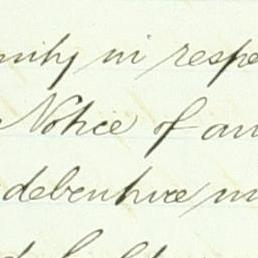 mity in respe
Notice of an
debenture m